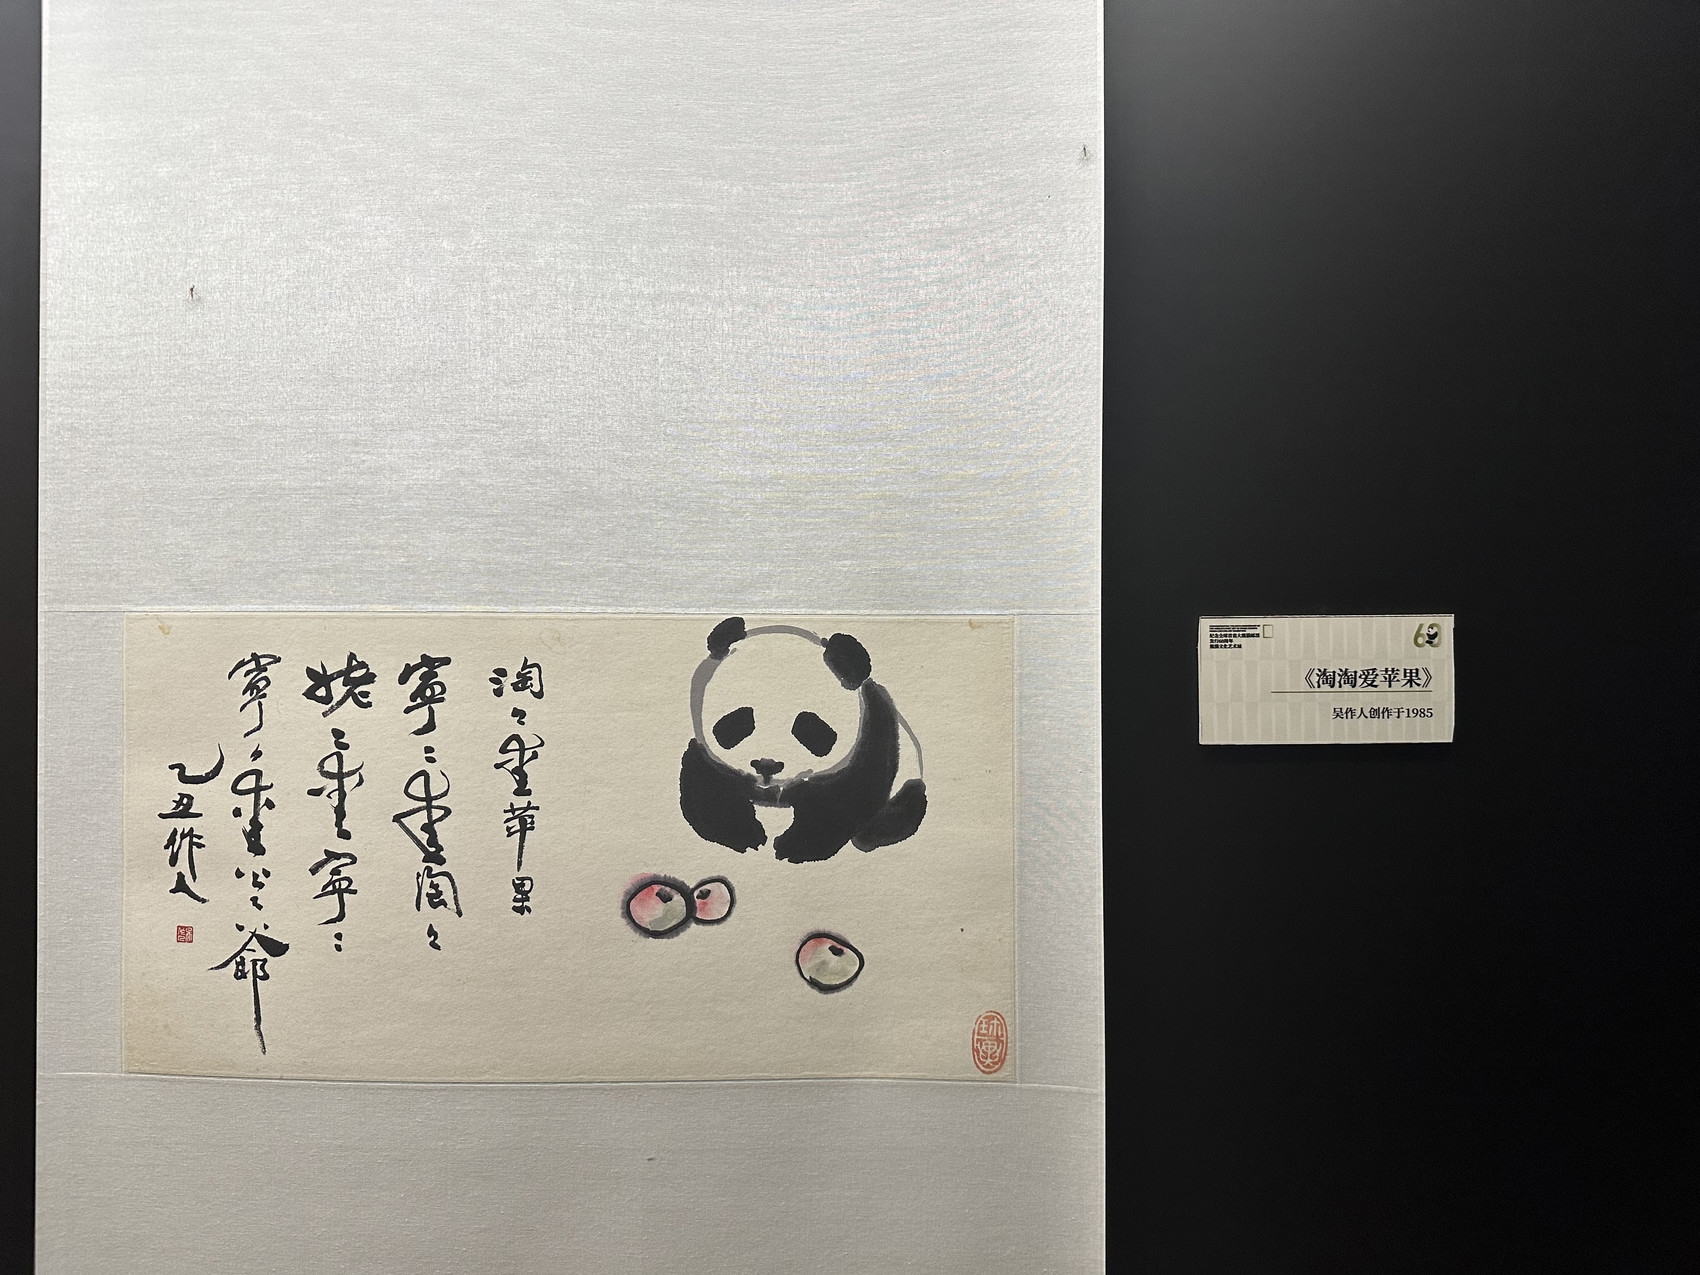 淘〻愛苹果
寧〻愛淘〻
姥〻愛寧〻
寧〻愛公〻爺
乙丑作人
纪念全球首套大熊猫邮票
发行60周年
熊猫文化艺术展
60
《淘淘爱苹果》
吴作人创作于1985